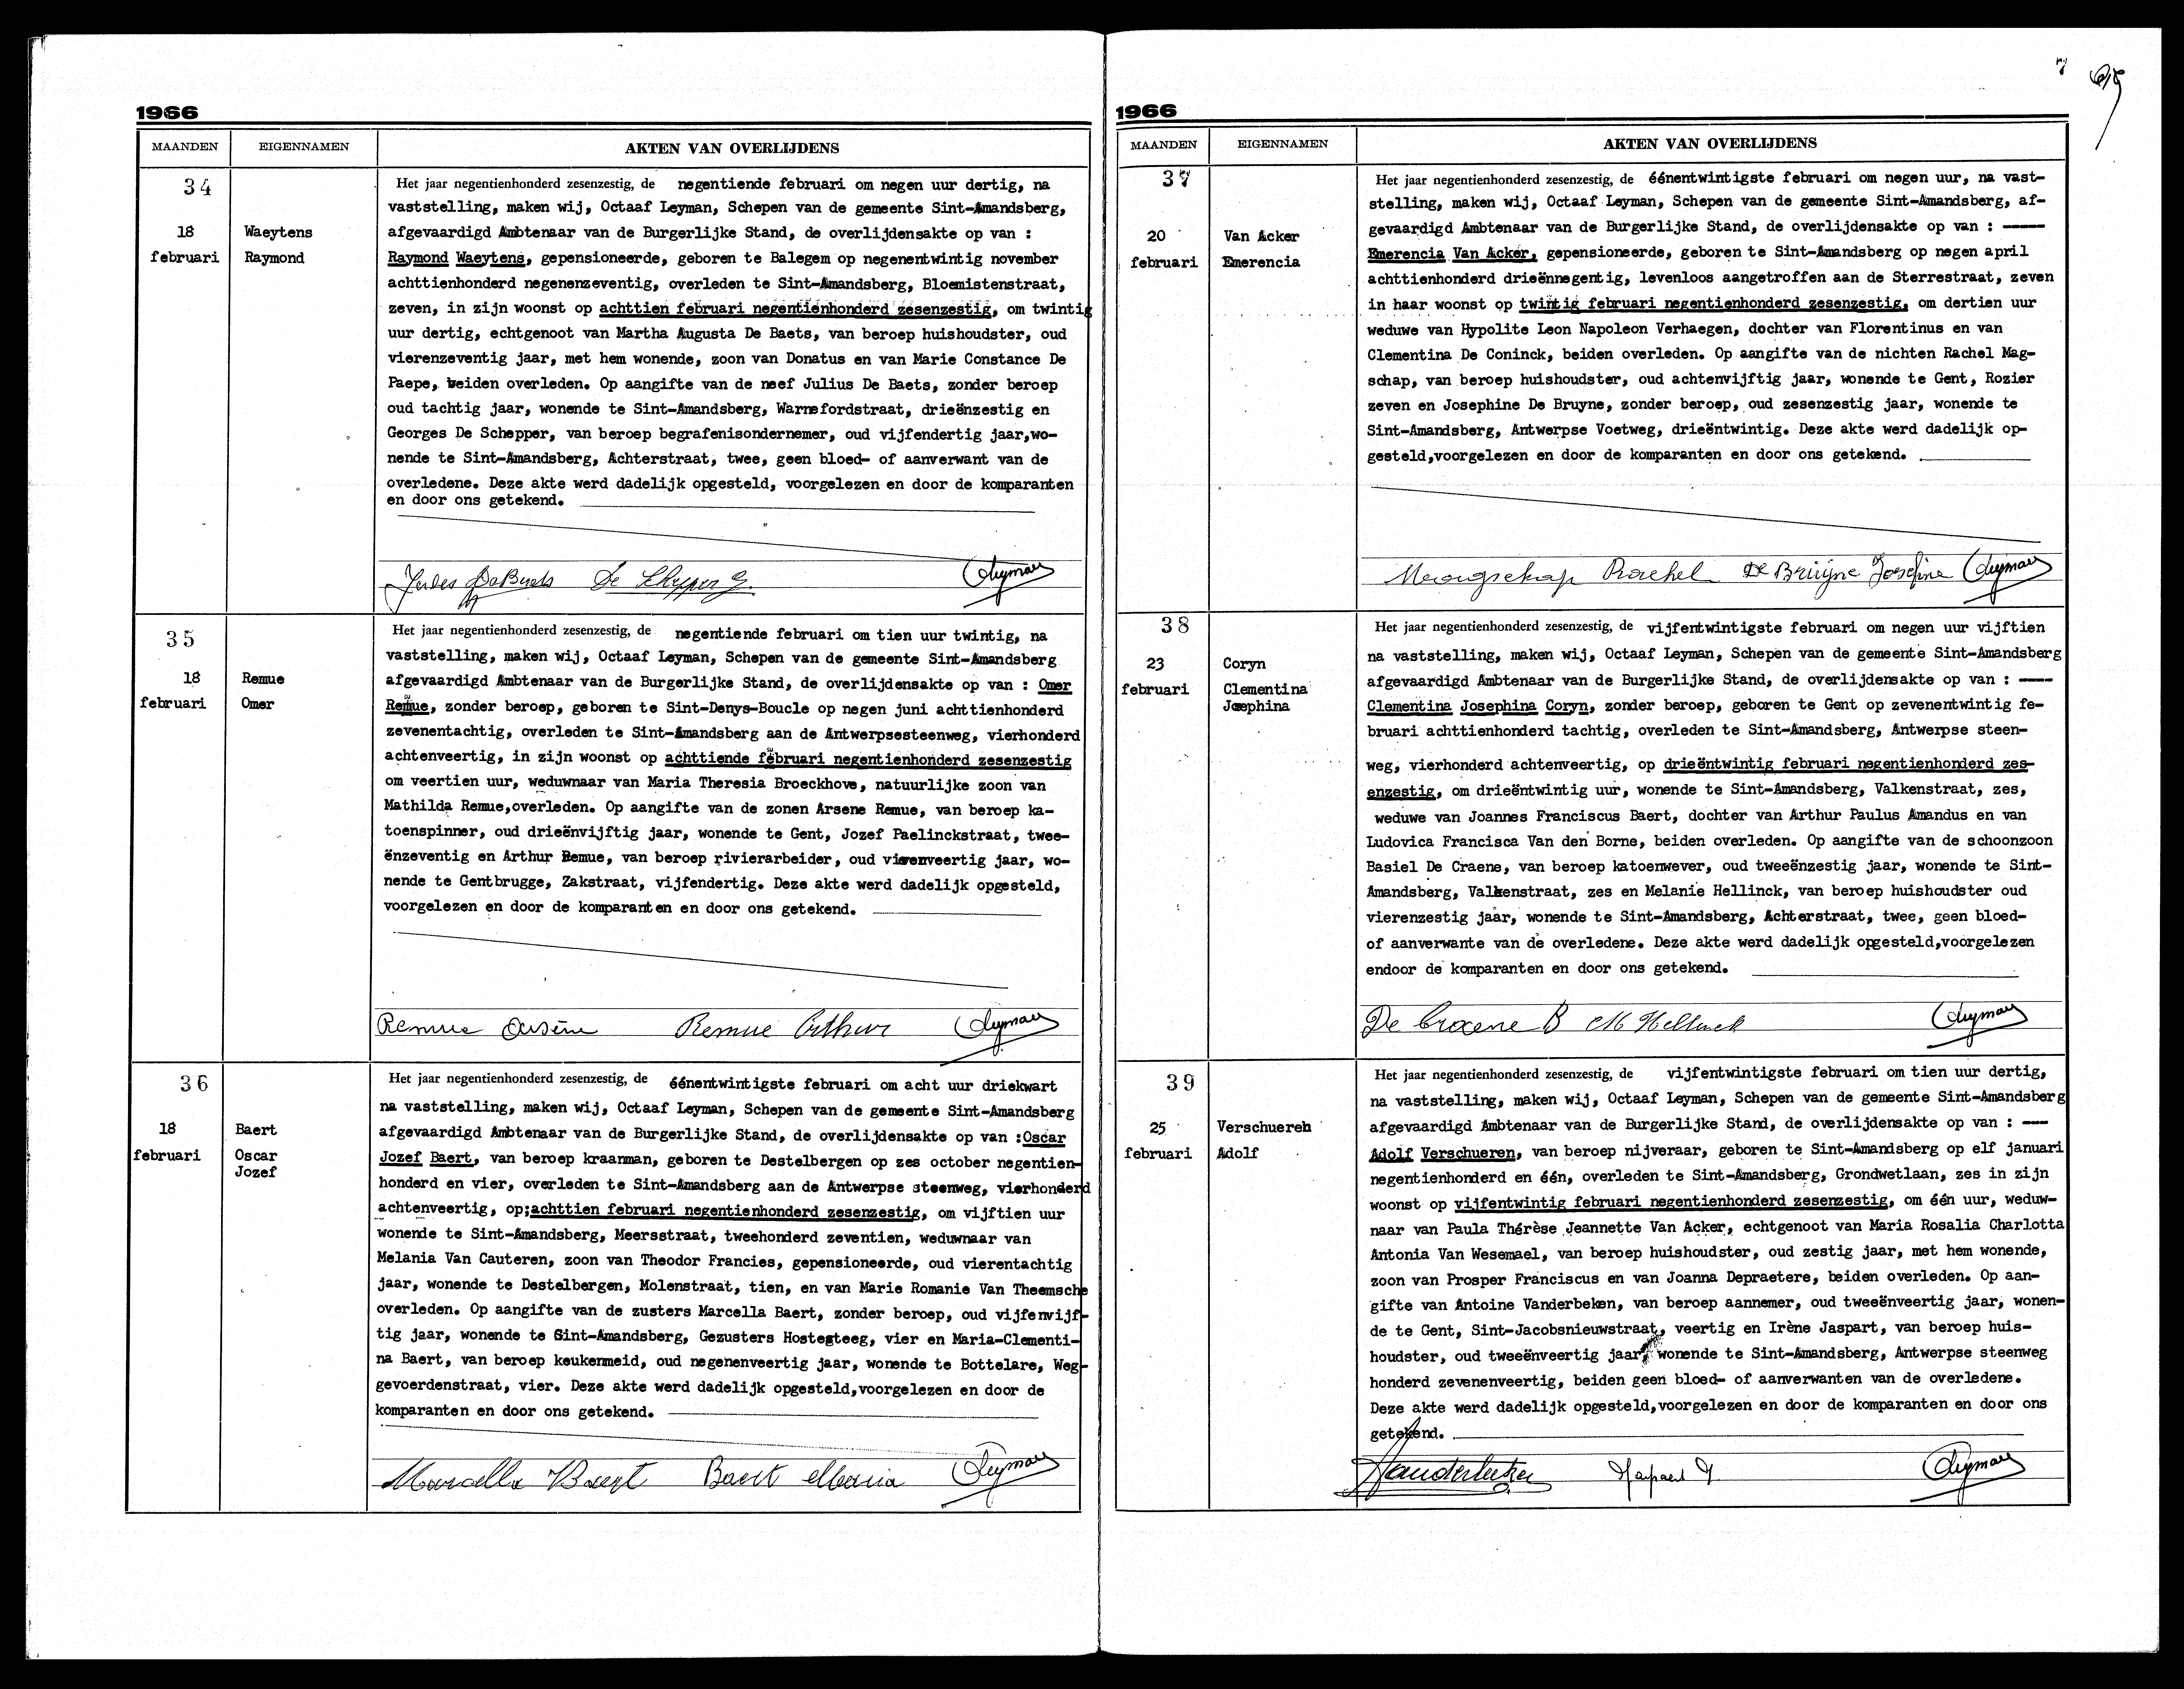 1966
MAANDEN EIGENNAMEN AKTEN VAN OVERLIJDENS
34
18
februari
Waeytens
Raymond
Het jaar negentienhonderd zesenzestig, de negentiende februari om negen uur dertig, na
vaststelling, maken wij, Octaaf Leyman, Schepen van de gemeente Sint-Amandsberg,
afgevaardigd Ambtenaar van de Burgerlijke Stand, de overlijdensakte op van :
Raymond Waeytens, gepensioneerde, geboren te Balegem op negenentwintig november
achttienhonderd negenenzeventig, overleden te Sint-Amandsberg, Bloemistenstraat,
zeven, in zijn woonst op achttien februari negentienhonderd zesenzestig, om twintig
uur dertig, echtgenoot van Martha Augusta De Baets, van beroep huishoudster, oud
vierenzeventig jaar, met hem wonende, zoon van Donatus en van Marie Constance De
Paepe, beiden overleden. Op aangifte van de neef Julius De Baets, zonder beroep
oud tachtig jaar, wonende te Sint-Amandsberg, Warnefordstraat, drieënzestig en
Georges De Schepper, van beroep begrafenisondernemer, oud vijfendertig jaar,wo-
nende te Sint-Amandsberg, Achterstraat, twee, geen bloed- of aanverwant van de
overledene. Deze akte werd dadelijk opgesteld, voorgelezen en door de komparanten
en door ons getekend.
Jules De Baets De Schepper G. OLeyman
35
18
februari
Remue
Omer
Het jaar negentienhonderd zesenzestig, de negentiende februari om tien uur twintig, na
vaststelling, maken wij, Octaaf Leyman, Schepen van de gemeente Sint-Amandsberg
afgevaardigd Ambtenaar van de Burgerlijke Stand, de overlijdensakte op van : Omer
Remue, zonder beroep, geboren te Sint-Denys-Boucle op negen juni achttienhonderd
zevenentachtig, overleden te Sint-Amandsberg aan de Antwerpsesteenweg, vierhonderd
achtenveertig, in zijn woonst op achttiende februari negentienhonderd zesenzestig
om veertien uur, weduwnaar van Maria Theresia Broeckhove, natuurlijke zoon van
Mathilda Remue,overleden. Op aangifte van de zonen Arsene Remue, van beroep ka-
toenspinner, oud drieënvijftig jaar, wonende te Gent, Jozef Paelinckstraat, twee-
ënzeventig en Arthur Remue, van beroep rivierarbeider, oud vierenveertig jaar, wo-
nende te Gentbrugge, Zakstraat, vijfendertig. Deze akte werd dadelijk opgesteld,
voorgelezen en door de komparanten en door ons getekend.
Remue Arsène Remue Arthur OLeyman
36
18
februari
Baert
Oscar
Jozef
Het jaar negentienhonderd zesenzestig, de éénentwintigste februari om acht uur driekwart
na vaststelling, maken wij, Octaaf Leyman, Schepen van de gemeente Sint-Amandsberg
afgevaardigd Ambtenaar van de Burgerlijke Stand, de overlijdensakte op van :Oscar
Jozef Baert, van beroep kraanman, geboren te Destelbergen op zes october negentien-
honderd en vier, overleden te Sint-Amandsberg aan de Antwerpse steenweg, vierhonderd
achtenveertig, op;achttien februari negentienhonderd zesenzestig, om vijftien uur
wonende te Sint-Amandsberg, Meersstraat, tweehonderd zeventien, weduwnaar van
Melania Van Cauteren, zoon van Theodor Francies, gepensioneerde, oud vierentachtig
jaar, wonende te Destelbergen, Molenstraat, tien, en van Marie Romanie Van Theemsche
overleden. Op aangifte van de zusters Marcella Baert, zonder beroep, oud vijfenvijf-
tig jaar, wonende te Sint-Amandsberg, Gezusters Hostegteeg, vier en Maria-Clementi-
na Baert, van beroep keukenmeid, oud negenenveertig jaar, wonende te Bottelare, Weg-
gevoerdenstraat, vier. Deze akte werd dadelijk opgesteld,voorgelezen en door de
komparanten en door ons getekend.
Marcella Baert Baert Maria OLeyman
7
1966
MAANDEN EIGENNAMEN AKTEN VAN OVERLIJDENS
37
20
februari
Van Acker
Emerencia
Het jaar negentienhonderd zesenzestig, de éénentwintigste februari om negen uur, na vast-
stelling, maken wij, Octaaf Leyman, Schepen van de gemeente Sint-Amandsberg, af-
gevaardigd Ambtenaar van de Burgerlijke Stand, de overlijdensakte op van : -----
Emerencia Van Acker, gepensioneerde, geboren te Sint-Amandsberg op negen april
achttienhonderd drieënnegentig, levenloos aangetroffen aan de Sterrestraat, zeven
in haar woonst op twintig februari negentienhonderd zesenzestig, om dertien uur
weduwe van Hypolite Leon Napoleon Verhaegen, dochter van Florentinus en van
Clementina De Coninck, beiden overleden. Op aangifte van de nichten Rachel Mag-
schap, van beroep huishoudster, oud achtenvijftig jaar, wonende te Gent, Rozier
zeven en Josephine De Bruyne, zonder beroep, oud zesenzestig jaar, wonende te
Sint-Amandsberg, Antwerpse Voetweg, drieëntwintig. Deze akte werd dadelijk op-
gesteld,voorgelezen en door de komparanten en door ons getekend.
Maagschap Rachel De Bruyne Josefine OLeyman
38
23
februari
Coryn
Clementina
Josephina
Het jaar negentienhonderd zesenzestig, de vijfentwintigste februari om negen uur vijftien
na vaststelling, maken wij, Octaaf Leyman, Schepen van de gemeente Sint-Amandsberg
afgevaardigd Ambtenaar van de Burgerlijke Stand, de overlijdensakte op van : ----
Clementina Josephina Coryn, zonder beroep, geboren te Gent op zevenentwintig fe-
bruari achttienhonderd tachtig, overleden te Sint-Amandsberg, Antwerpse steen-
weg, vierhonderd achtenveertig, op drieëntwintig februari negentienhonderd zes-
enzestig, om drieëntwintig uur, wonende te Sint-Amandsberg, Valkenstraat, zes,
weduwe van Joannes Franciscus Baert, dochter van Arthur Paulus Amandus en van
Ludovica Francisca Van den Borne, beiden overleden. Op aangifte van de schoonzoon
Basiel De Craene, van beroep katoenwever, oud tweeënzestig jaar, wonende te Sint-
Amandsberg, Valkenstraat, zes en Melanie Hellinck, van beroep huishoudster oud
vierenzestig jaar, wonende te Sint-Amandsberg, Achterstraat, twee, geen bloed-
of aanverwante van de overledene. Deze akte werd dadelijk opgesteld,voorgelezen
endoor de komparanten en door ons getekend.
De Craene B M Hellinck OLeyman
39
25
februari
Verschueren
Adolf
Het jaar negentienhonderd zesenzestig, de vijfentwintigste februari om tien uur dertig,
na vaststelling, maken wij, Octaaf Leyman, Schepen van de gemeente Sint-Amandsberg
afgevaardigd Ambtenaar van de Burgerlijke Stand, de overlijdensakte op van : ---
Adolf Verschueren, van beroep nijveraar, geboren te Sint-Amandsberg op elf januari
negentienhonderd en één, overleden te Sint-Amandsberg, Grondwetlaan, zes in zijn
woonst op vijfentwintig februari negentienhonderd zesenzestig, om één uur, weduw-
naar van Paula Thérèse Jeannette Van Acker, echtgenoot van Maria Rosalia Charlotta
Antonia Van Wesemael, van beroep huishoudster, oud zestig jaar, met hem wonende,
zoon van Prosper Franciscus en van Joanna Depraetere, beiden overleden. Op aan-
gifte van Antoine Vanderbeken, van beroep aannemer, oud tweeënveertig jaar, wonen-
de te Gent, Sint-Jacobsnieuwstraat, veertig en Irène Jaspart, van beroep huis-
houdster, oud tweeënveertig jaar, wonende te Sint-Amandsberg, Antwerpse steenweg
honderd zevenenveertig, beiden geen bloed- of aanverwanten van de overledene.
Deze akte werd dadelijk opgesteld,voorgelezen en door de komparanten en door ons
getekend.
Vanderbeken Jaspart I. OLeyman